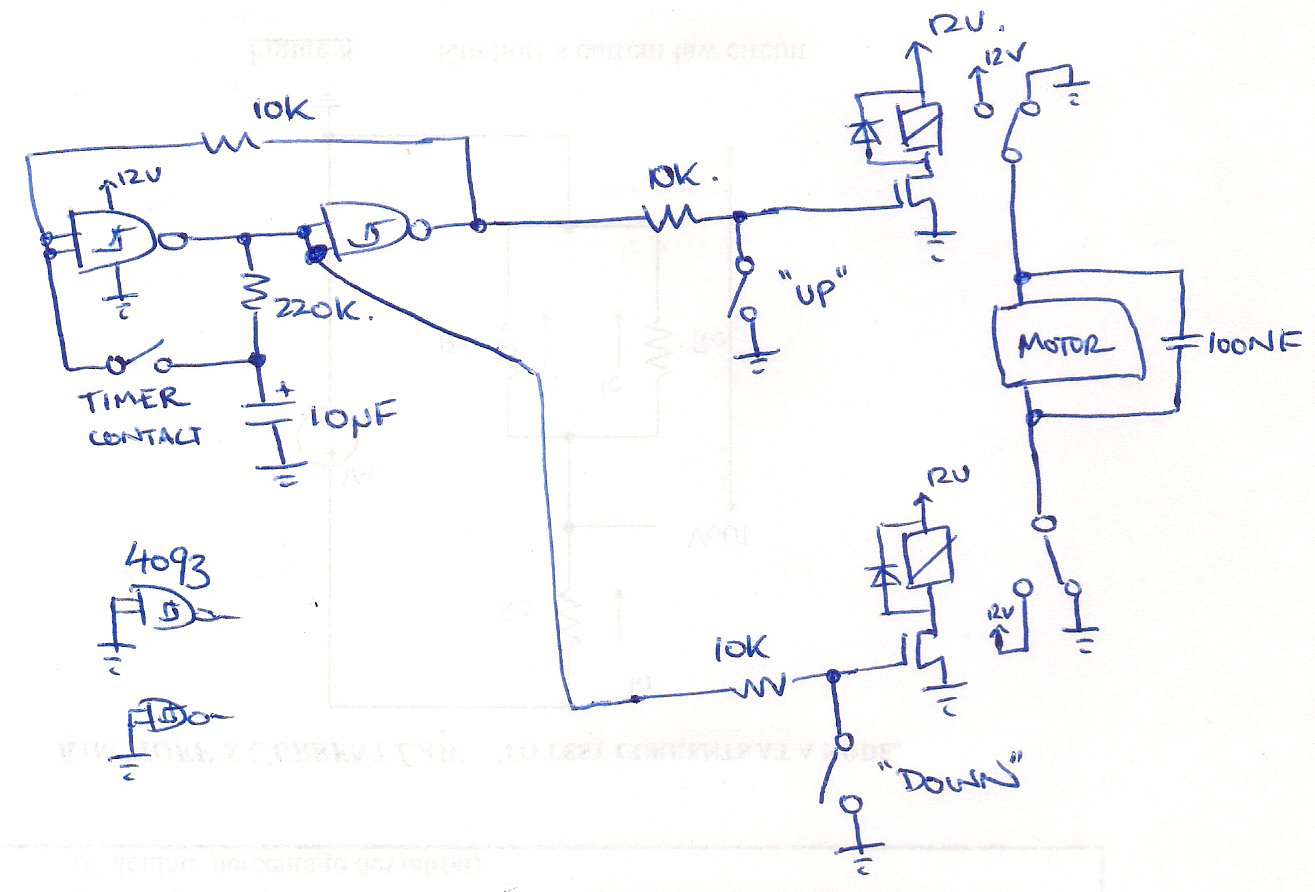 12V.
12V
10K
10K.
12V
"UP"
220K.
MOTOR
100NF
TIMER
CONTACT
+
10µF
12V
4093
12V
10K
"DOWN"